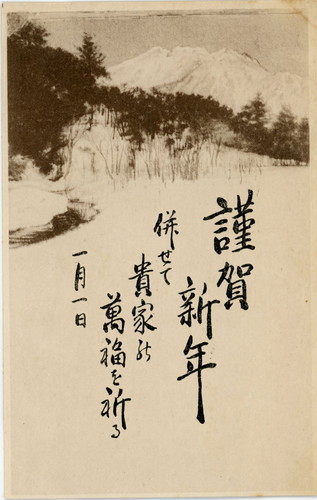 謹賀
新年
併せて
貴家の
萬福を祈る
一月一日